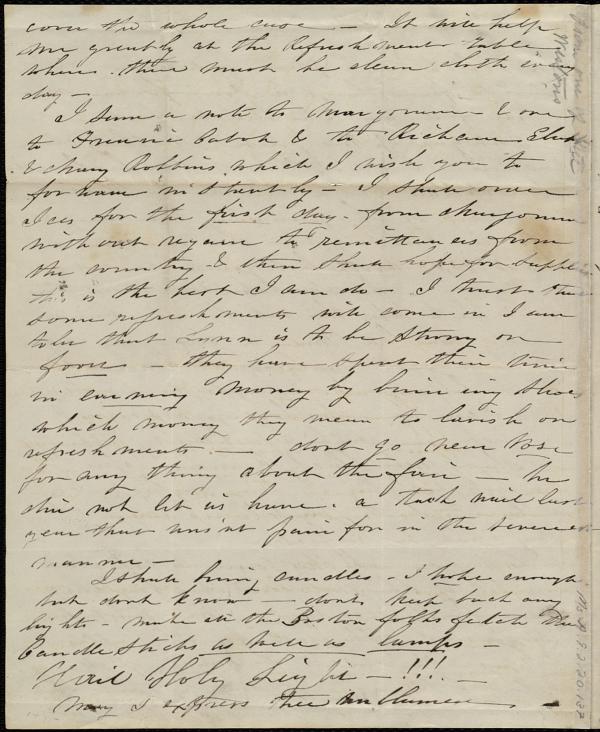 cover the whole case — It will help
me greatly at the Refreshment Table
where there must be clean cloth every
day —
I send a note to & one
to & to Richard
& Robbins which I wish you to
forward instantly — I shall order
Ices for the first day from
without regard to remittances from
the country & then shall hope for supplies
this is the best I can do — I trust that
some refreshments will come in I am
told that Lynn is to be strong on
food — they have spent their time
in earning money by binding shoes
which money they mean to lavish on
refreshments — dont go near
for any thing about the fair — he
did not let us have a tack nail last
year that was'nt paid for in the severest
manner —
I shall bring candles — I hope enough
but dont know — dont keep back any
lights — make all the Boston folks fetch their
Candlesticks as well as lamps —
Hail Holy Light — !!! —
May I express thee unblamed —
Weston
Ms. A.9.2.20.137